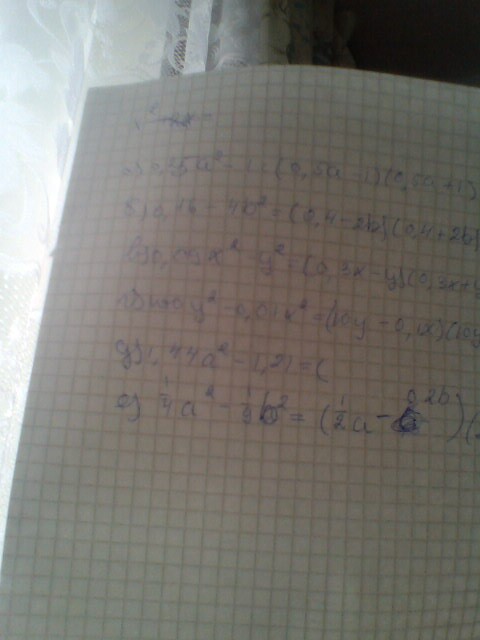 а) 0,25a² - 1 = (0,5a - 1)(0,5a + 1)
б) 0,16 - 4b² = (0,4 - 2b)(0,4 + 2b)
в) 0,09x² - y² = (0,3x - y)(0,3x + y
г) 100y² - 0,01x² = (10y - 0,1x)(10y
д) 1,44a² - 1,21 = (
е) 1/4a² - 1/9b² = (1/2a - 0,2b)(